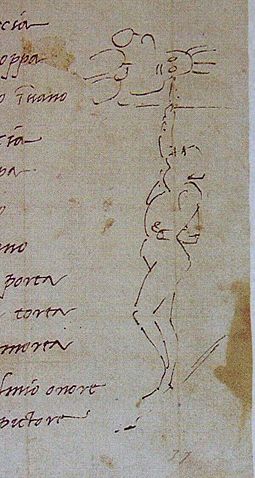 ecia
oppa
o inuano
cia
pa
o
ano
porta
torta
morta
lmio onore
pictore